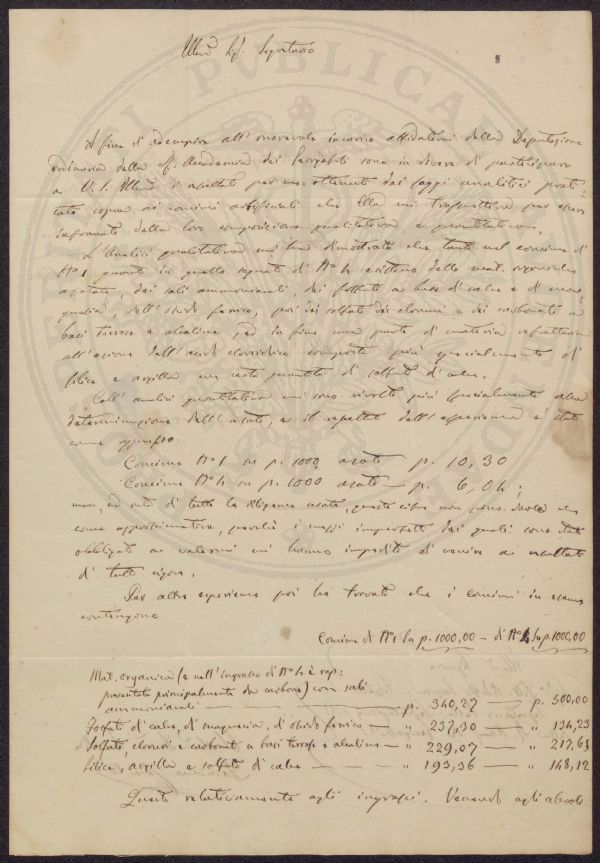 Ill.mo Sig. Segretario
A fine d'adempire all'onorevole incarico affidatomi dalla Deputazione
ordinaria della R. Accademia dei Georgofili sono in dovere di partecipare
a V. S. Ill.ma i resultati per me ottenuti dai saggi analitici prati=
cati sopra ai concimi artificiali che Ella mi trasmetteva per essere
informata della loro composizione qualitativa e quantitativa.
L'Analisi qualitativa mi ha dimostrato che tanto nel concime di
N° 1 quanto in quello segnato di N° 4 esistono delle mat. organiche
azotate, dei sali ammoniacali, dei fosfati a base di calce e di ma=
gnesia, dell'ossido ferrico, poi dei solfati dei cloruri e dei carbonati a
basi terrose e alcaline, ed in fine una parte di materia refrattaria
all'azione dell'acido cloroidrico composta più specialmente di
silice e argilla con certa quantità di solfato di calce.
Coll'analisi quantitativa mi sono rivolto più specialmente alla
determinazione dell'azoto, e il resultato dell'esperienza è stato
come appresso
Concime N° 1 su p. 1000 azoto p. 10,30
Concime N° 4 su p. 1000 azoto — p. 6,04;
ma, ad onta di tutta la diligenza usata, queste cifre non posso darle che
come approssimative, perchè i mezzi imperfetti dei quali sono stato
obbligato a valermi mi hanno impedito di venire a resultati
di tutto rigore.
Per altre esperienze poi ho trovato che i concimi in esame
contengono
Concime di N° 1 su p. 1000,00 — di N° 4 su p. 1000,00
Mat. organica (e nell'ingrasso di N° 4 è rap:
presentata principalmente da carbone) con sali
ammoniacali — p. 340,27 — p. 500,00
Fosfati di calce, di magnesia, di ossido ferrico — " 237,30 — " 134,23
Solfati, cloruri e carbonati a basi terrose e alcaline — " 229,07 — " 217,65
Silice, argilla e solfato di calce — " 193,36 — " 148,12
Questo relativamente agli ingrassi. Venendo agli